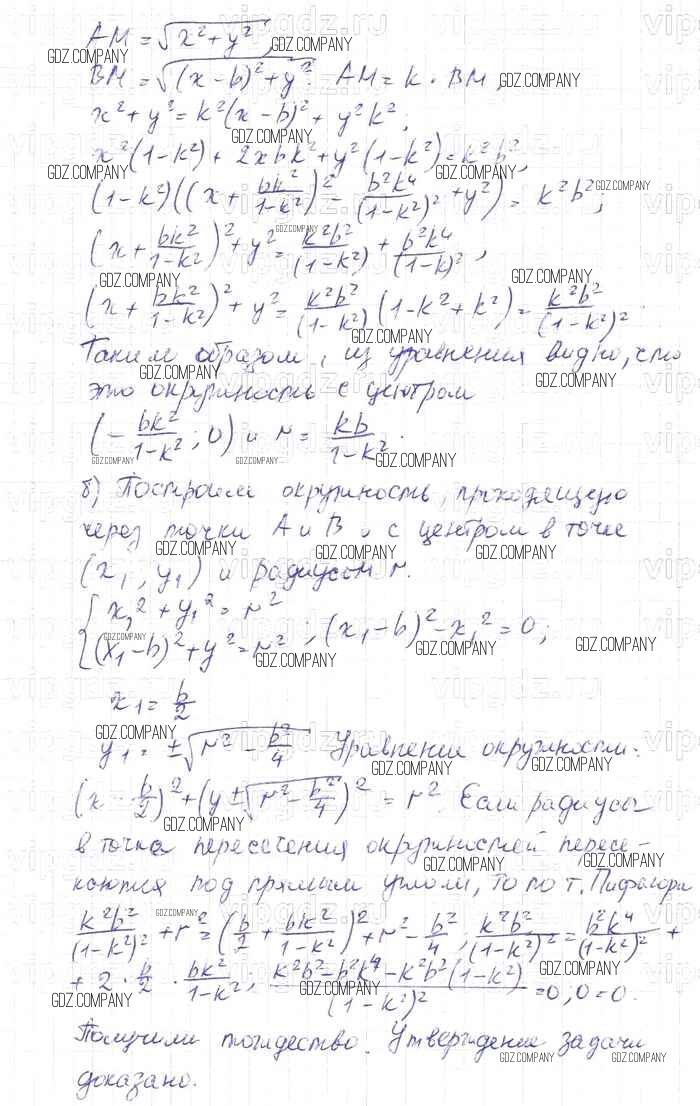 AM = √(x² + y²),
BM = √((x − b)² + y²) AM = k · BM,
x² + y² = k²(x − b)² + y²k²;
x²(1−k²) + 2xbk² + y²(1−k²) = k²b²,
(1−k²)((x + bk²/(1−k²))² − b²k⁴/(1−k²)² + y²) = k²b²;
(x + bk²/(1−k²))² + y² = k²b²/(1−k²) + b²k⁴/(1−k)²,
(x + bk²/(1−k²))² + y² = k²b²/(1−k²) (1−k²+k²) = k²b²/(1−k²)².
Таким образом, из уравнения видно, что
это окружность с центром
(−bk²/(1−k²); 0) и r = kb/(1−k²).
б) Построим окружность, проходящую
через точки A и B и с центром в точке
(x₁, y₁) и радиусом r.
{ x₁² + y₁² = r²
(x₁−b)² + y² = r² ; (x₁−b)² − x₁² = 0;
x₁ = b/2
y₁ = ±√(r² − b²/4) Уравнение окружности:
(x − b/2)² + (y ± √(r² − b²/4))² = r². Если радиусы
в точке пересечения окружностей пересе-
каются под прямым углом, то по т. Пифагора
k²b²/(1−k²)² + r² = (b/2 + bk²/(1−k²))² + r² − b²/4; k²b²/(1−k²)² = b²k⁴/(1−k²)² +
+ 2 · b/2 · bk²/(1−k²); (k²b² − b²k⁴ − k²b²(1−k²))/(1−k²)² = 0; 0 = 0.
Получили тождество. Утверждение задачи
доказано.